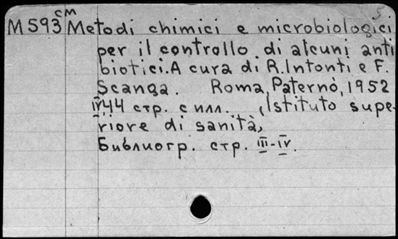 см
М593 Metodi chimici e microbiologici
per il controllo di alcuni anti
biotici. A cura di R. Intonti e F.
Scanga. Roma, Paternò, 1952
IV, 44 стр. с илл. , Istituto supe-
riore di sanità,
Библиогр. стр. III-IV.